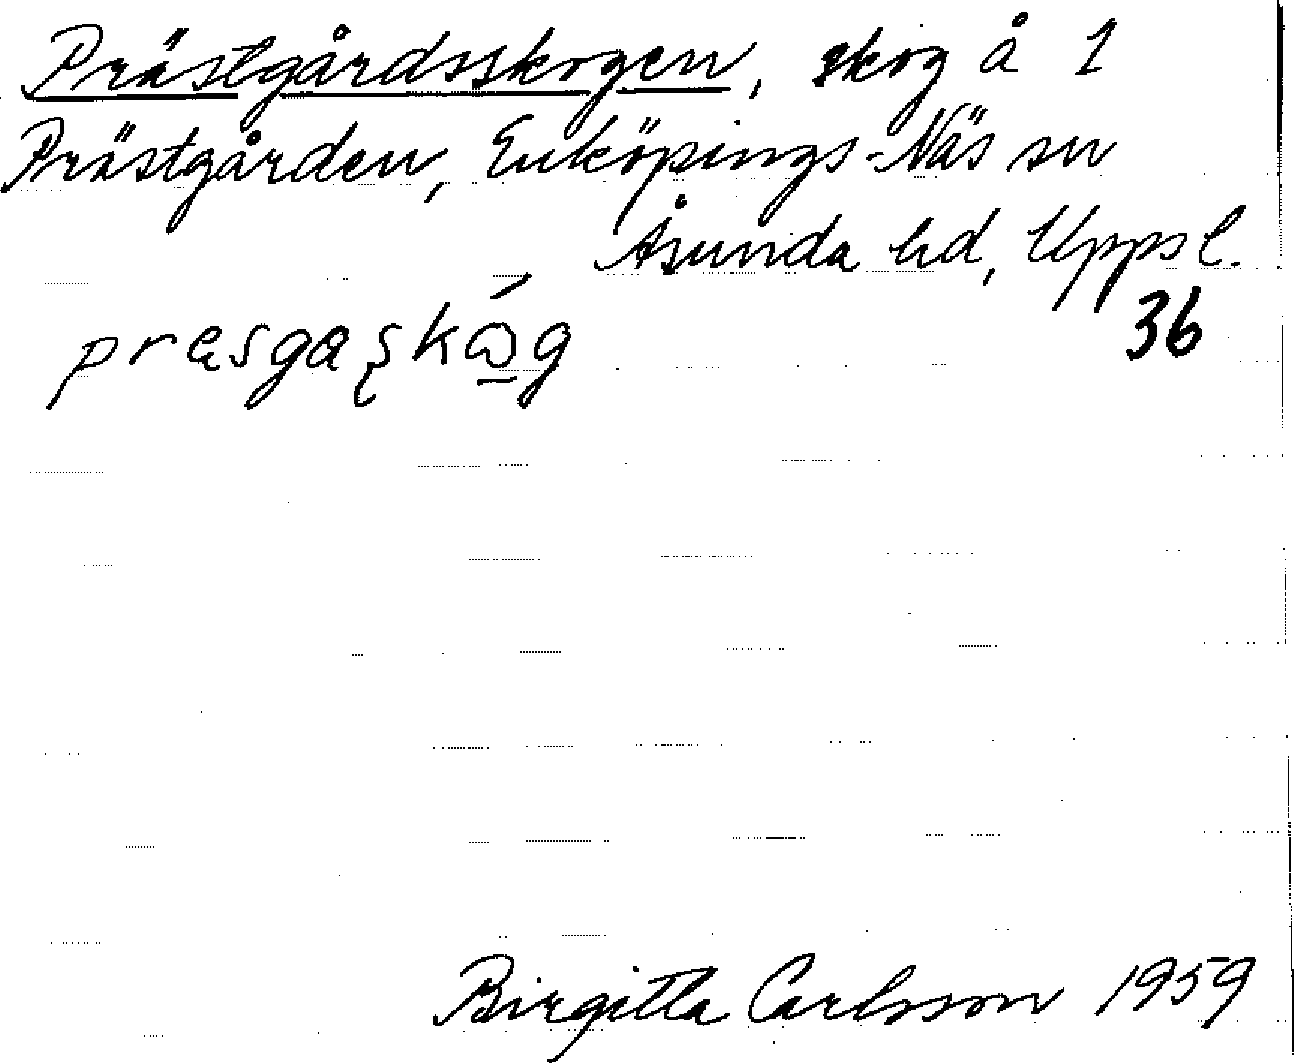 Prästgårdsskogen, skog å 1
Prästgården, Enköpings-Näs sn
Åsunda hd, Uppsl.
36
Birgitta Carlsson 1959